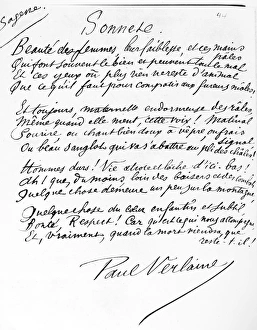 Sagesse.
Sonnets
Beauté des femmes, leur faiblesse, et ces mains
pâles
Qui font souvent le bien et peuvent tout le mal
Et ces yeux où plus rien ne reste d'animal
Que ce qu'il faut pour dire assez aux fureurs mâles
Et toujours, maternelle endormeuse des râles,
Même quand elle ment, cette voix! Matinal
Sourire ou chant bien doux à vêpre ou frais
signal
Ou beau sanglot qui va s'abattre au pli des châles!
Hommes durs! Vie atroce et laide d'ici-bas!
Ah! que, du moins, loin des baisers et des combats,
Quelque chose demeure un peu sur la montagne,
Quelque chose du cœur enfantin et subtil,
Bonté, Respect! Car qu'est-ce qui nous accompagne,
Et, vraiment, quand la mort viendra, que
reste-t-il!
Paul Verlaine